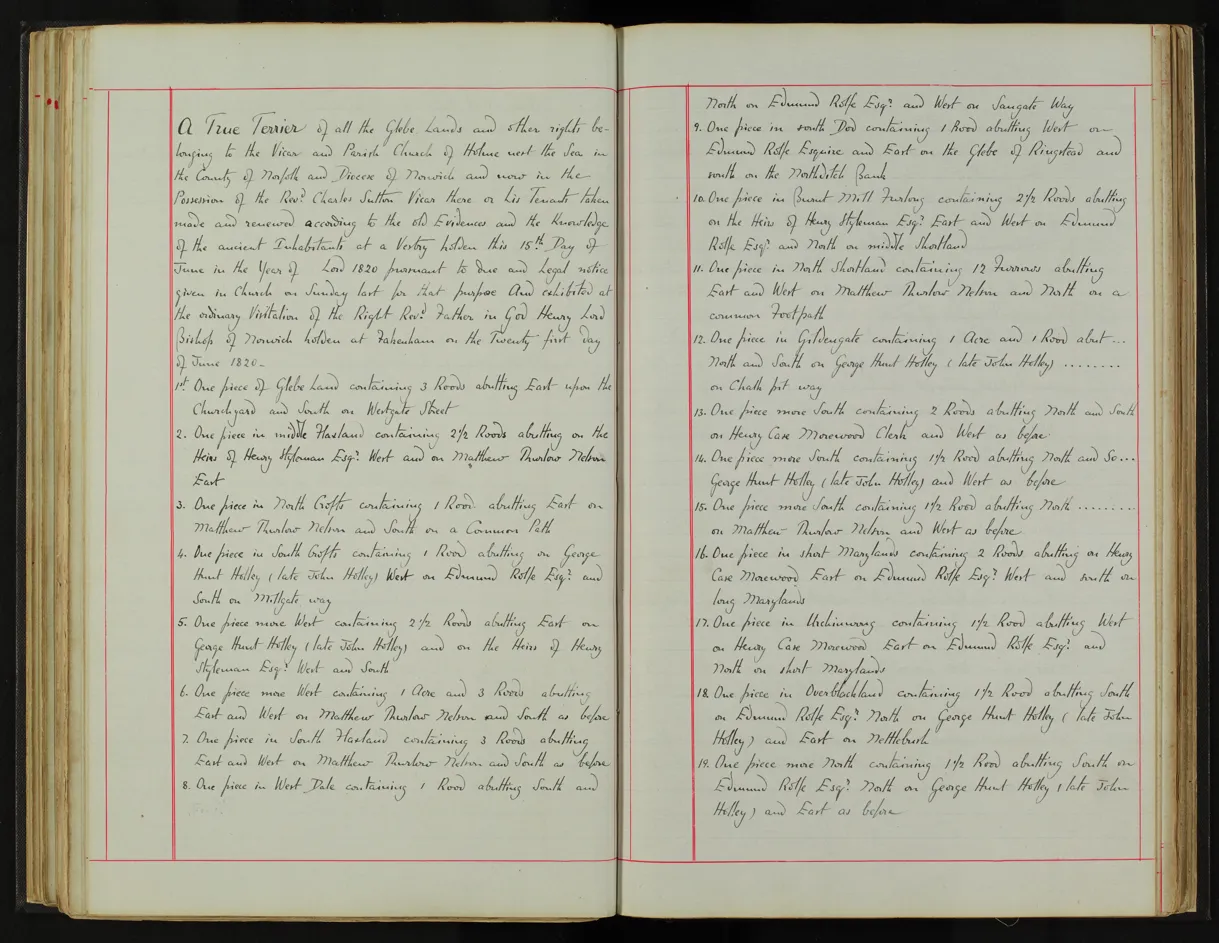 A True Terrier of all the Glebe Lands and other rights be-
longing to the Vicar and Parish Church of Holme next the Sea in
the County of Norfolk and Diocese of Norwich and now in the
Possession of the Revd Charles Sutton Vicar there or his Tenants taken
made and renewed according to the old Evidences and the Knowledge
of the ancient Inhabitants at a Vestry holden this 15th Day of
June in the Year of Lord 1820 pursuant to due and Legal notice
given in Church on Sunday last for that purpose And exhibited at
the ordinary Visitation of the Right Revd Father in God Henry Lord
Bishop of Norwich holden at Fakenham on the Twenty first Day
of June 1820 -
1st One piece of Glebe Land containing 3 Roods abutting East upon the
Churchyard and South on Westgate Street
2. One piece in middle Flaxland containing 2 1/2 Roods abutting on the
Heirs of Henry Styleman Esqr West and on Matthew Thurlow Nelson
East
3. One piece in North Crofts containing 1 Rood abutting East on
Matthew Thurlow Nelson and South on a Common Path
4. One piece in South Crofts containing 1 Rood abutting on George
Hunt Holley (late John Holley) West on Edmund Rolfe Esqr and
South on Millgate way
5. One piece more West containing 2 1/2 Roods abutting East on
George Hunt Holley (late John Holley) and on the Heirs of Henry
Styleman Esqr West and South
6. One piece more West containing 1 Acre and 3 Roods abutting
East and West on Matthew Thurlow Nelson and South as before
7. One piece in South Flaxland containing 3 Roods abutting
East and West on Matthew Thurlow Nelson and South as before
8. One piece in West Dale containing 1 Rood abutting South and
North on Edmund Rolfe Esqr and West on Sangate Way
9. One piece in south Dod containing 1 Rood abutting West on
Edmund Rolfe Esquire and East on the Glebe of Ringstead and
south on the Northditch Bank
10. One piece in Burnt Mill Furlong containing 2 1/2 Roods abutting
on the Heirs of Henry Styleman Esqr East and West on Edmund
Rolfe Esqr and North on middle Shortland
11. One piece in North Shortland containing 12 Furrows abutting
East and West on Matthew Thurlow Nelson and North on a
common Footpath
12. One piece in Gildengate containing 1 Acre and 1 Rood abut ...
North and South on George Hunt Holley (late John Holley) ........
on Chalk pit way
13. One piece more South containing 2 Roods abutting North and South
on Henry Case Morewood Clerk and West as before
14. One piece more South containing 1 1/2 Rood abutting North and So...
George Hunt Holley (late John Holley) and West as before
15. One piece more South containing 1 1/2 Rood abutting North .........
on Matthew Thurlow Nelson and West as before
16. One piece in short Marylands containing 2 Roods abutting on Henry
Case Morewood East on Edmund Rolfe Esqr West and south on
long Marylands
17. One piece in containing 1 1/2 Rood abutting West
on Henry Case Morewood East on Edmund Rolfe Esqr and
North on short Marylands
18. One piece in Overblackland containing 1 1/2 Rood abutting South
on Edmund Rolfe Esqr North on George Hunt Holley (late John
Holley) and East on Nettlebush
19. One piece more North containing 1 1/2 Rood abutting South on
Edmund Rolfe Esqr North on George Hunt Holley (late John
Holley) and East as before